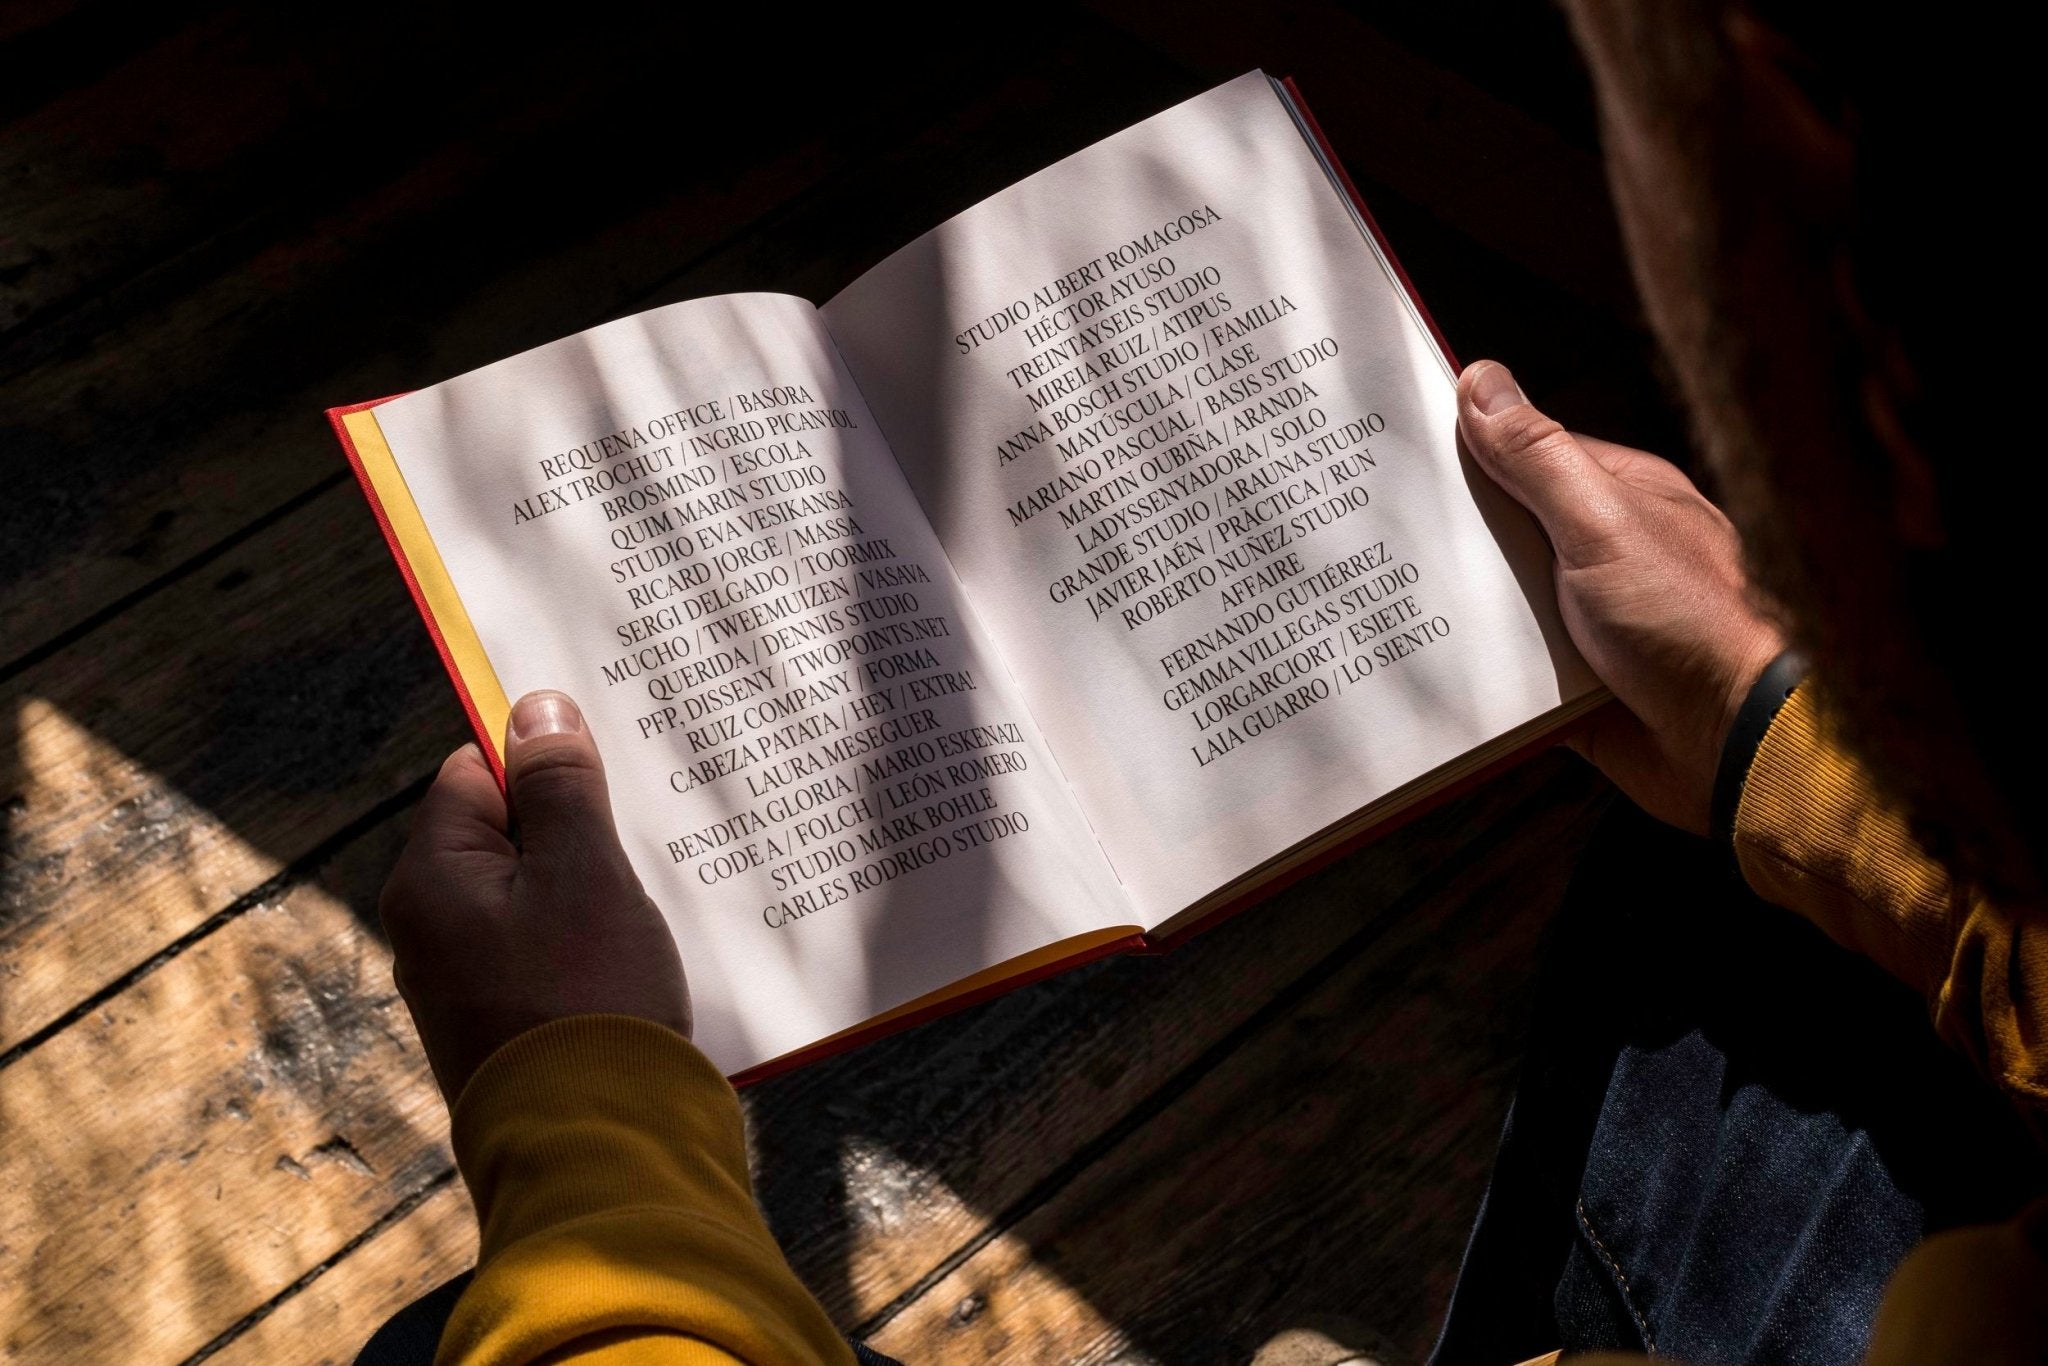 REQUENA OFFICE / BASORA
ALEX TROCHUT / INGRID PICANYOL
BROSMIND / ESCOLA
QUIM MARIN STUDIO
STUDIO EVA VESIKANSA
RICARD JORGE / MASSA
SERGI DELGADO / TOORMIX
MUCHO / TWEEMUIZEN / VASAVA
QUERIDA / DENNIS STUDIO
PFP, DISSENY / TWOPOINTS.NET
RUIZ COMPANY / FORMA
CABEZA PATATA / HEY / EXTRA!
LAURA MESEGUER
BENDITA GLORIA / MARIO ESKENAZI
CODE A / FOLCH / LEÓN ROMERO
STUDIO MARK BOHLE
CARLES RODRIGO STUDIO
STUDIO ALBERT ROMAGOSA
HÉCTOR AYUSO
TREINTAYSEIS STUDIO
MIREIA RUIZ / ATIPUS
ANNA BOSCH STUDIO / FAMILIA
MAYÚSCULA / CLASE
MARIANO PASCUAL / BASIS STUDIO
MARTIN OUBIÑA / ARANDA
LADYSSENYADORA / SOLO
GRANDE STUDIO / ARAUNA STUDIO
JAVIER JAÉN / PRÀCTICA / RUN
ROBERTO NUÑEZ STUDIO
AFFAIRE
FERNANDO GUTIÉRREZ
GEMMA VILLEGAS STUDIO
LORGARCIORT / ESIETE
LAIA GUARRO / LO SIENTO